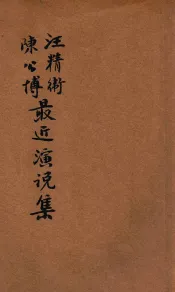 汪精衛
陳公博
最近演说集